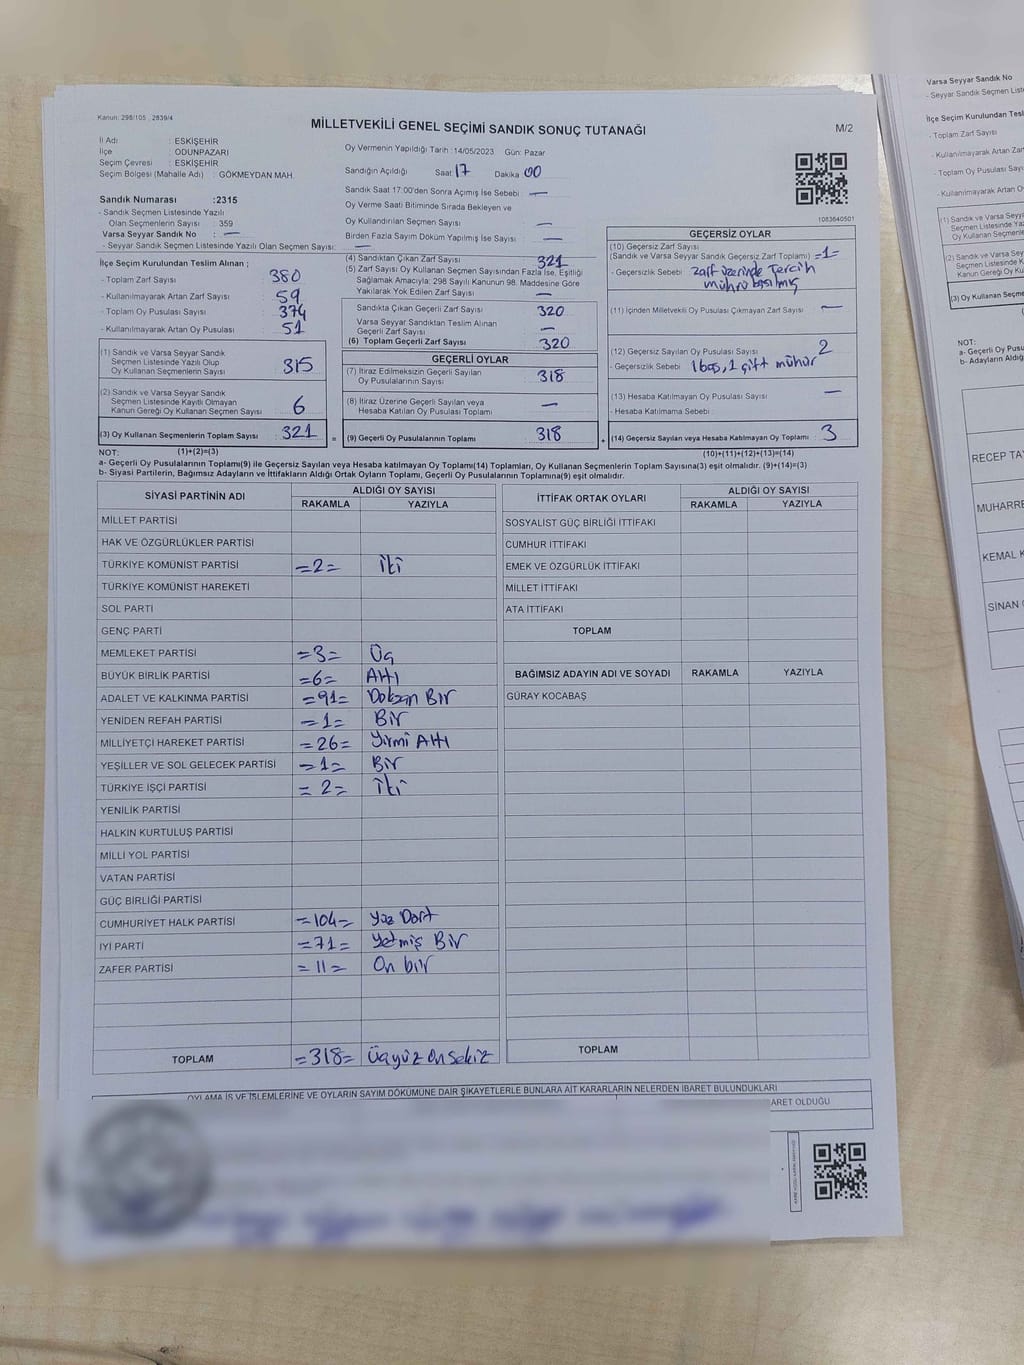 Kanun: 298/105 , 2839/4
MİLLETVEKİLİ GENEL SEÇİMİ SANDIK SONUÇ TUTANAĞI
M/2
İl Adı : ESKİŞEHİR
İlçe : ODUNPAZARI
Seçim Çevresi : ESKİŞEHİR
Seçim Bölgesi (Mahalle Adı) : GÖKMEYDAN MAH.
Sandık Numarası :2315
- Sandık Seçmen Listesinde Yazılı
Olan Seçmenlerin Sayısı : 359
Varsa Seyyar Sandık No : —
- Seyyar Sandık Seçmen Listesinde Yazılı Olan Seçmen Sayısı: —
Oy Vermenin Yapıldığı Tarih : 14/05/2023 Gün: Pazar
Sandığın Açıldığı Saat 17 Dakika 00
Sandık Saat 17:00'den Sonra Açımış İse Sebebi —
Oy Verme Saati Bitiminde Sırada Bekleyen ve
Oy Kullandırılan Seçmen Sayısı —
Birden Fazla Sayım Döküm Yapılmış İse Sayısı —
1083640501
İlçe Seçim Kurulundan Teslim Alınan ;
- Toplam Zarf Sayısı 380
- Kullanılmayarak Artan Zarf Sayısı 59
- Toplam Oy Pusulası Sayısı 374
- Kullanılmayarak Artan Oy Pusulası 51
(1) Sandık ve Varsa Seyyar Sandık
Seçmen Listesinde Yazılı Olup
Oy Kullanan Seçmenlerin Sayısı 315
(2) Sandık ve Varsa Seyyar Sandık
Seçmen Listesinde Kayıtlı Olmayan
Kanun Gereği Oy Kullanan Seçmen Sayısı 6
(3) Oy Kullanan Seçmenlerin Toplam Sayısı 321
(1)+(2)=(3)
(4) Sandıktan Çıkan Zarf Sayısı 321
(5) Zarf Sayısı Oy Kullanan Seçmen Sayısından Fazla İse, Eşitliği
Sağlamak Amacıyla; 298 Sayılı Kanunun 98. Maddesine Göre
Yakılarak Yok Edilen Zarf Sayısı —
Sandıkta Çıkan Geçerli Zarf Sayısı 320
Varsa Seyyar Sandıktan Teslim Alınan
Geçerli Zarf Sayısı —
(6) Toplam Geçerli Zarf Sayısı 320
GEÇERLİ OYLAR
(7) İtiraz Edilmeksizin Geçerli Sayılan
Oy Pusulalarının Sayısı 318
(8) İtiraz Üzerine Geçerli Sayılan veya
Hesaba Katılan Oy Pusulası Toplamı —
= (9) Geçerli Oy Pusulalarının Toplamı 318
GEÇERSİZ OYLAR
(10) Geçersiz Zarf Sayısı
(Sandık ve Varsa Seyyar Sandık Geçersiz Zarf Toplamı) =1=
- Geçersizlik Sebebi Zarf üzerinde Tercih
mührü basılmış
(11) İçinden Milletvekili Oy Pusulası Çıkmayan Zarf Sayısı —
(12) Geçersiz Sayılan Oy Pusulası Sayısı 2
- Geçersizlik Sebebi 1 boş, 1 çift mühür
(13) Hesaba Katılmayan Oy Pusulası Sayısı —
- Hesaba Katılmama Sebebi
+ (14) Geçersiz Sayılan veya Hesaba Katılmayan Oy Toplamı 3
(10)+(11)+(12)+(13)=(14)
NOT:
a- Geçerli Oy Pusulalarının Toplamı(9) ile Geçersiz Sayılan veya Hesaba katılmayan Oy Toplamı(14) Toplamları, Oy Kullanan Seçmenlerin Toplam Sayısına(3) eşit olmalıdır. (9)+(14)=(3)
b- Siyasi Partilerin, Bağımsız Adayların ve İttifakların Aldığı Ortak Oyların Toplamı, Geçerli Oy Pusulalarının Toplamına(9) eşit olmalıdır.
SİYASİ PARTİNİN ADI ALDIĞI OY SAYISI
RAKAMLA YAZIYLA
MİLLET PARTİSİ
HAK VE ÖZGÜRLÜKLER PARTİSİ
TÜRKİYE KOMÜNİST PARTİSİ =2= İki
TÜRKİYE KOMÜNİST HAREKETİ
SOL PARTİ
GENÇ PARTİ
MEMLEKET PARTİSİ =3= Üç
BÜYÜK BİRLİK PARTİSİ =6= Altı
ADALET VE KALKINMA PARTİSİ =91= Doksan Bir
YENİDEN REFAH PARTİSİ =1= Bir
MİLLİYETÇİ HAREKET PARTİSİ =26= Yirmi Altı
YEŞİLLER VE SOL GELECEK PARTİSİ =1= Bir
TÜRKİYE İŞÇİ PARTİSİ =2= İki
YENİLİK PARTİSİ
HALKIN KURTULUŞ PARTİSİ
MİLLİ YOL PARTİSİ
VATAN PARTİSİ
GÜÇ BİRLİĞİ PARTİSİ
CUMHURİYET HALK PARTİSİ =104= Yüz Dört
İYİ PARTİ =71= Yetmiş Bir
ZAFER PARTİSİ =11= On bir
TOPLAM =318= Üçyüz On Sekiz
İTTİFAK ORTAK OYLARI ALDIĞI OY SAYISI
RAKAMLA YAZIYLA
SOSYALİST GÜÇ BİRLİĞİ İTTİFAKI
CUMHUR İTTİFAKI
EMEK VE ÖZGÜRLÜK İTTİFAKI
MİLLET İTTİFAKI
ATA İTTİFAKI
TOPLAM
BAĞIMSIZ ADAYIN ADI VE SOYADI RAKAMLA YAZIYLA
GÜRAY KOCABAŞ
TOPLAM
OYLAMA İŞ VE İŞLEMLERİNE VE OYLARIN SAYIM DÖKÜMÜNE DAİR ŞİKAYETLERLE BUNLARA AİT KARARLARIN NELERDEN İBARET BULUNDUKLARI
ARET OLDUĞU
Varsa Seyyar Sandık No
- Seyyar Sandık Seçmen List
İlçe Seçim Kurulundan Tesl
- Toplam Zarf Sayısı
- Kullanılmayarak Artan Zar
- Toplam Oy Pusulası Sayıs
- Kullanılmayarak Artan Oy
(1) Sandık ve Varsa Seyya
Seçmen Listesinde Yazıl
Oy Kullanan Seçmenleri
(2) Sandık ve Varsa Seyya
Seçmen Listesinde Kay
Kanun Gereği Oy Kulla
(3) Oy Kullanan Seçme
NOT:
a- Geçerli Oy Pusu
b- Adayların Aldığı
RECEP TAY
MUHARRE
KEMAL K
SİNAN